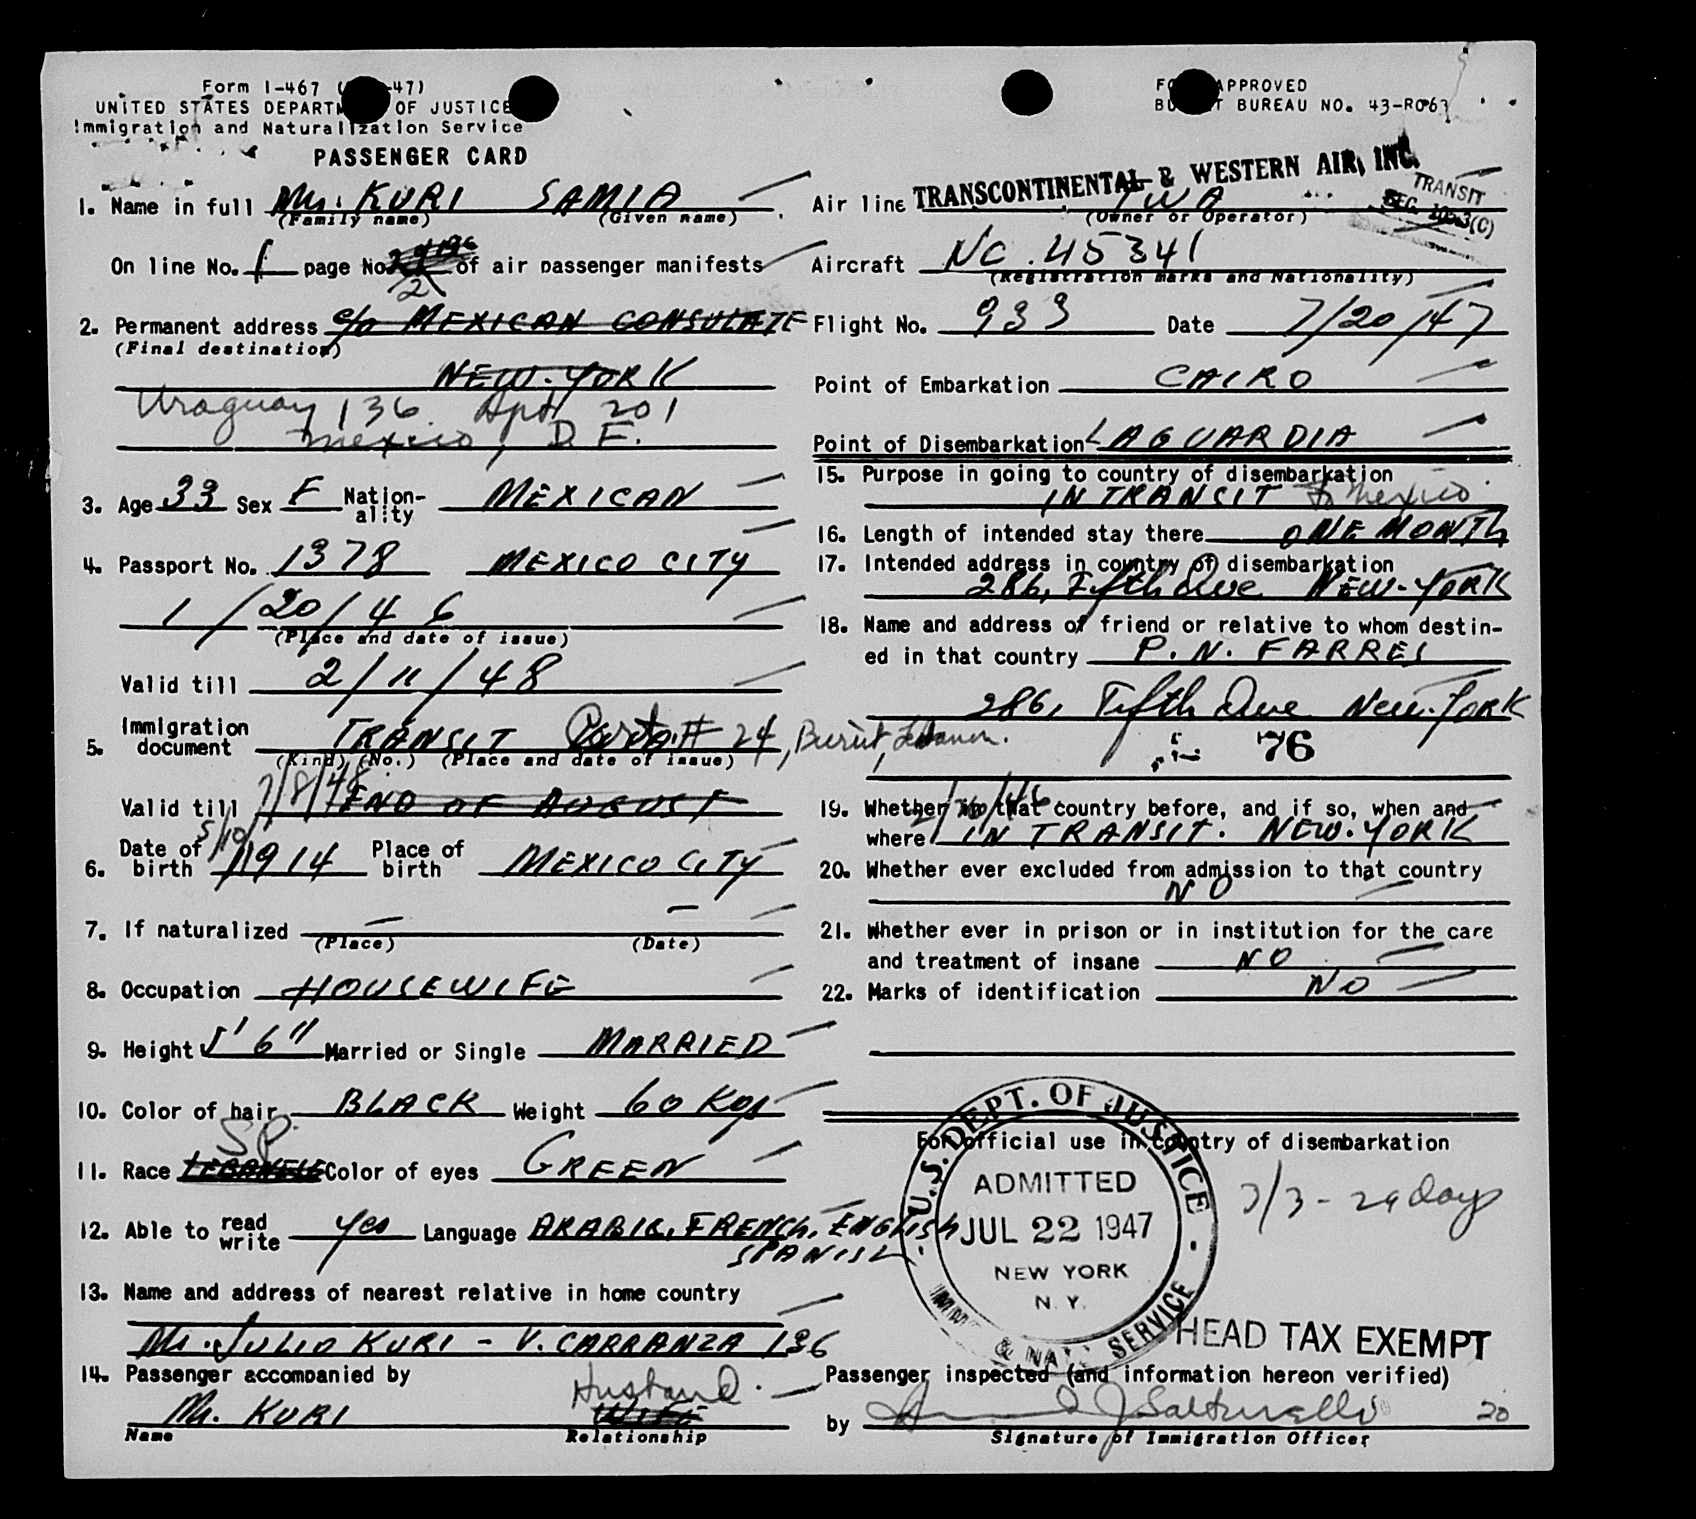 Form I-467 ( -47)
UNITED STATES DEPARTM OF JUSTICE
Immigration and Naturalization Service
PASSENGER CARD
1. Name in full Mrs. KURI SAMIA
(Family name) (Given name)
On line No. 1 page No. 2 of air passenger manifests
2. Permanent address c/o MEXICAN CONSULATE
(Final destination)
NEW-YORK
Uraguay 136 Apt 201
Mexico, D.F.
3. Age 33 Sex F Nation-ality MEXICAN
4. Passport No. 1378 MEXICO CITY
1/20/46
(Place and date of issue)
Valid till 2/11/48
5. Immigration document TRANSIT # 24, Beirut, Lebanon.
(Kind) (No.) (Place and date of issue)
Valid till 7/8/48 END OF AUGUST
6. Date of birth 5/10/1914 Place of birth MEXICO CITY
7. If naturalized — —
(Place) (Date)
8. Occupation HOUSEWIFE
9. Height 5' 6" Married or Single MARRIED
10. Color of hair BLACK Weight 60 Kgs
SP.
11. Race LEBANESE Color of eyes GREEN
12. Able to read write Yes Language ARABIC, FRENCH, ENGLISH
SPANISH
13. Name and address of nearest relative in home country
Mr. JULIO KURI - V. CARRANZA 136
14. Passenger accompanied by
Mr. KURI Husband WIFE
Name Relationship
FO APPROVED
BU T BUREAU NO. 43-R063
TRANSCONTINENTAL & WESTERN AIR, INC.
TRANSIT
SEC. (C)
Air line TWA
(Owner or Operator)
Aircraft NC. 45341
(Registration marks and Nationality)
Flight No. 933 Date 7/20/47
Point of Embarkation CAIRO
Point of Disembarkation LAGUARDIA
15. Purpose in going to country of disembarkation
IN TRANSIT to Mexico
16. Length of intended stay there ONE MONTH
17. Intended address in country of disembarkation
286, Fifth Ave NEW-YORK
18. Name and address of friend or relative to whom destin-
ed in that country P. N. FARRES
286, Fifth Ave New-YORK
76
19. Whether in that country before, and if so, when and
where IN TRANSIT. NEW-YORK
20. Whether ever excluded from admission to that country
NO
21. Whether ever in prison or in institution for the care
and treatment of insane NO
22. Marks of identification NO
For official use in country of disembarkation
U.S. DEPT. OF JUSTICE
ADMITTED
JUL 22 1947
NEW YORK
N. Y.
IMMI & NAT SERVICE
7/3 - 29 days
HEAD TAX EXEMPT
Passenger inspected (and information hereon verified)
by 20
Signature of Immigration Officer